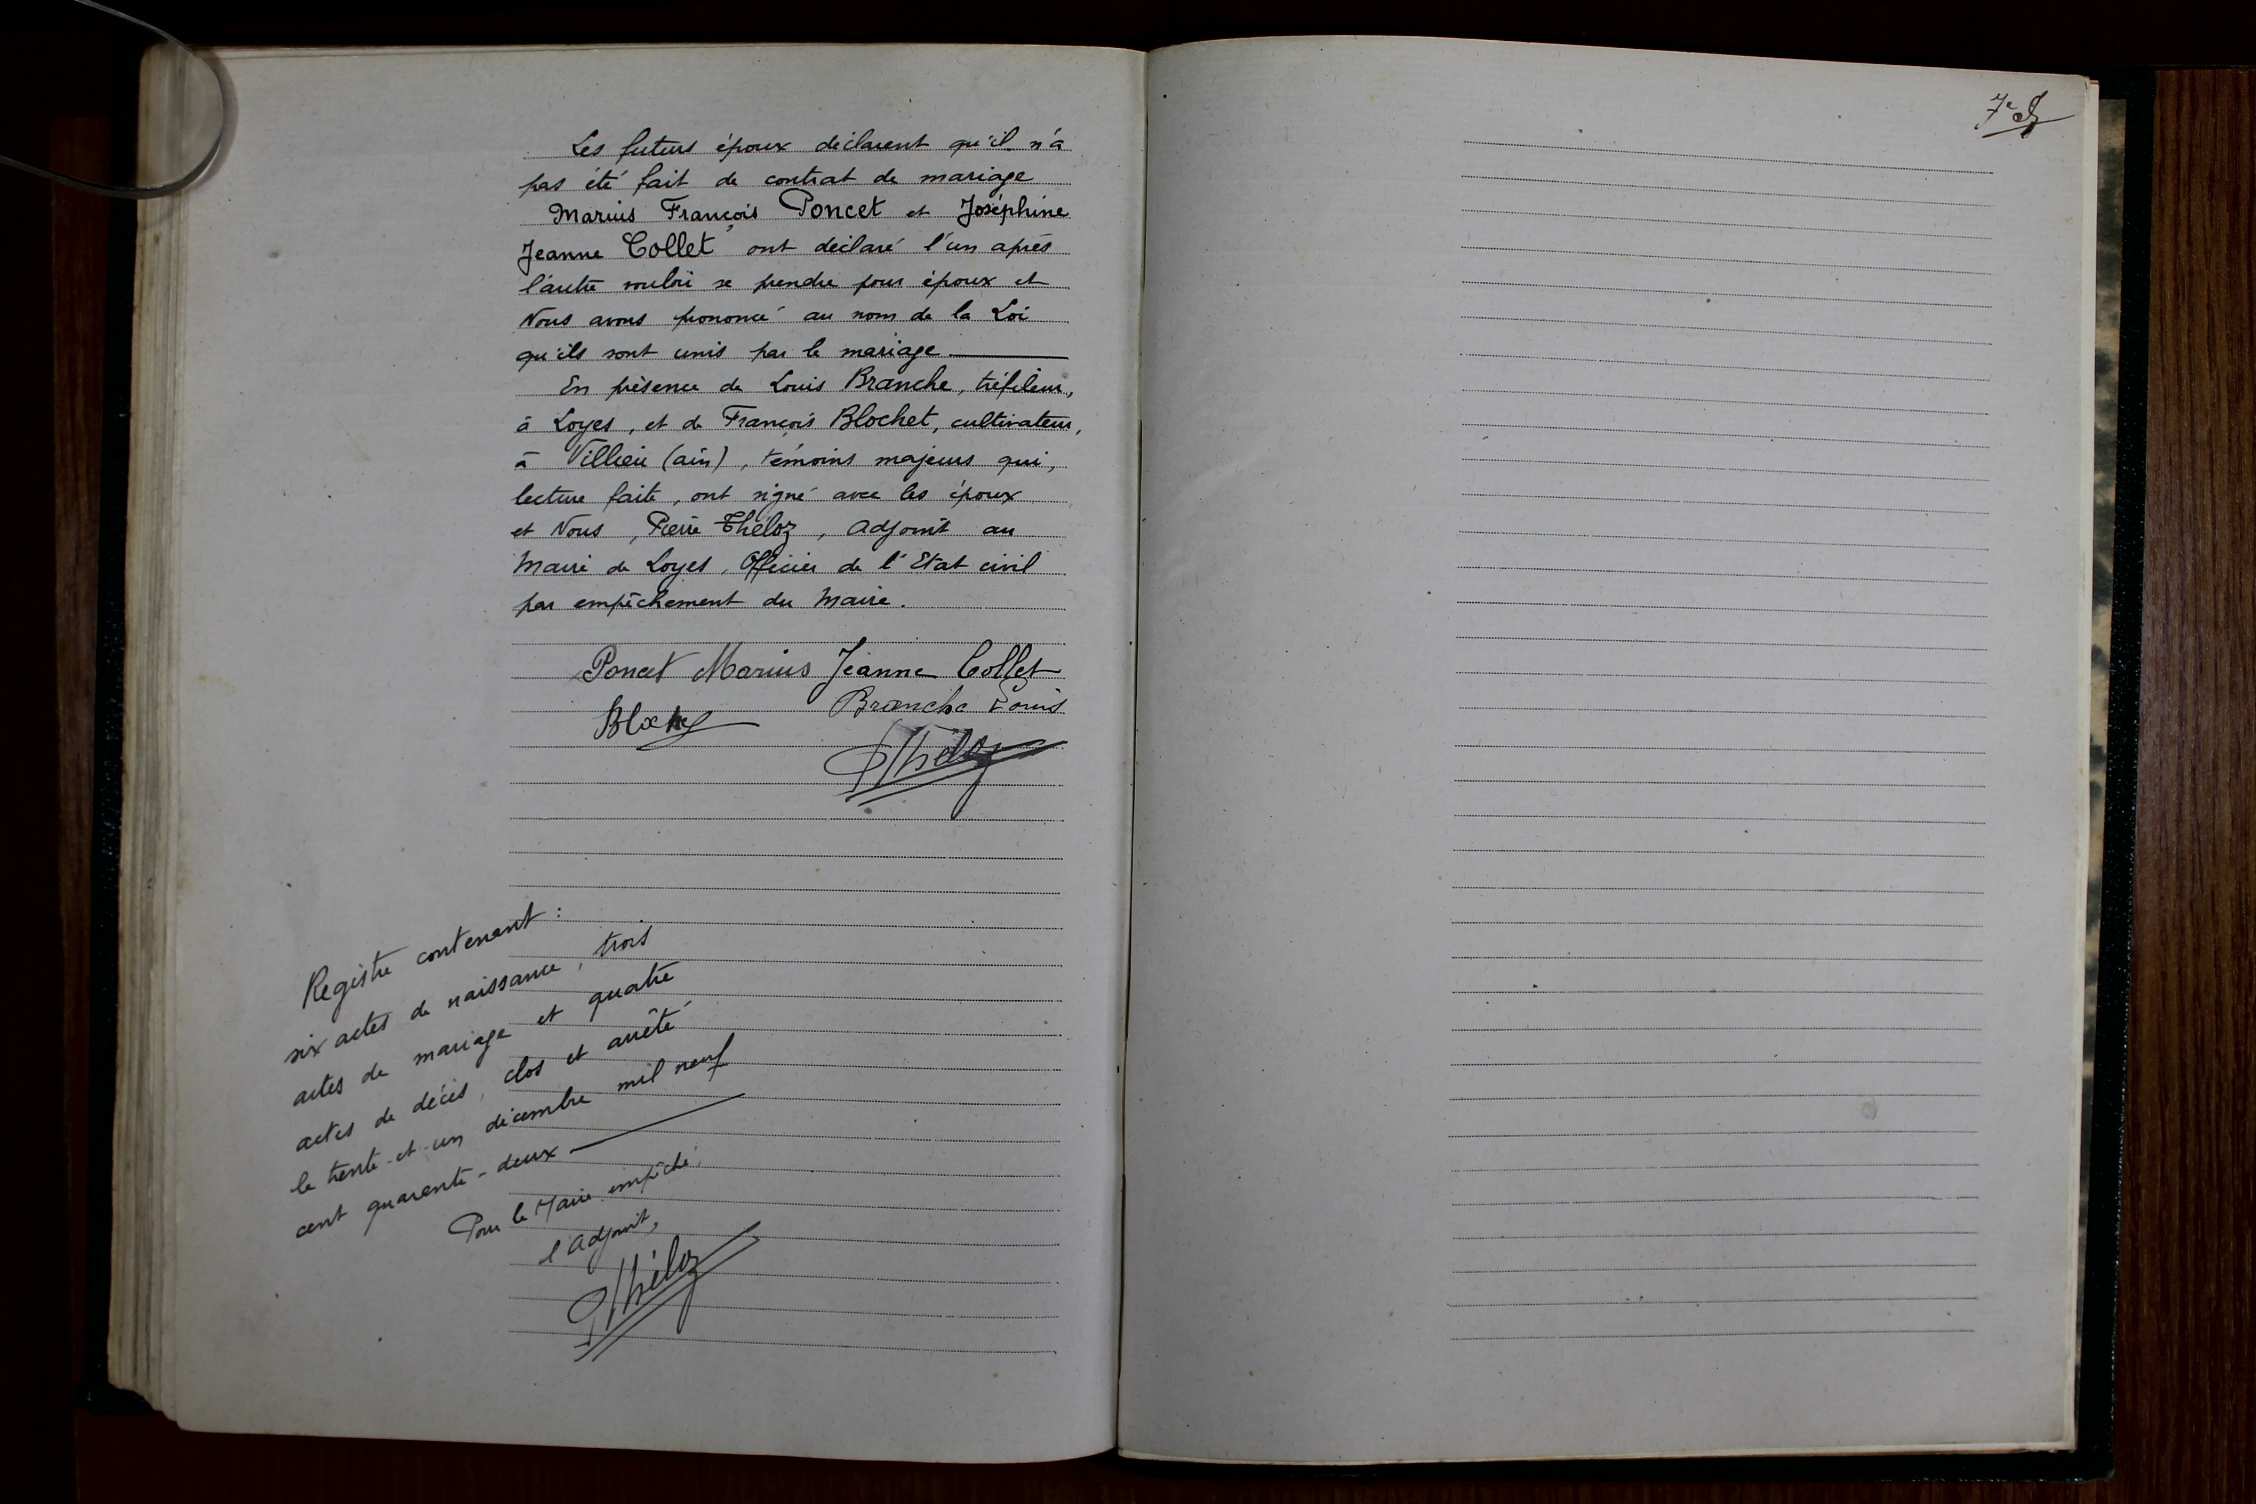 Les futurs époux déclarent qu'il n'a
pas été fait de contrat de mariage
Marius François Poncet et Joséphine
Jeanne Collet, ont déclaré l'un après
l'autre vouloir se prendre pour époux et
Nous avons prononcé au nom de la Loi
qu'ils sont unis par le mariage
En présence de Louis Branche, tréfileur,
à Loyes, et de François Blochet, cultivateur,
à Villieu (ain), témoins majeurs qui,
lecture faite, ont signé avec les époux
et Nous, Pierre Théloz, adjoint au
Maire de Loyes, Officier de l'Etat civil
par empêchement du Maire.
Poncet Marius Jeanne Collet
Branche Louis
Blochet
PThéloz
Registre contenant :
six actes de naissance, trois
actes de mariage et quatre
actes de décès, clos et arrêté
le trente-et-un décembre mil neuf
cent quarante-deux
Pour le Maire empêché,
l'adjoint,
PThéloz
7e